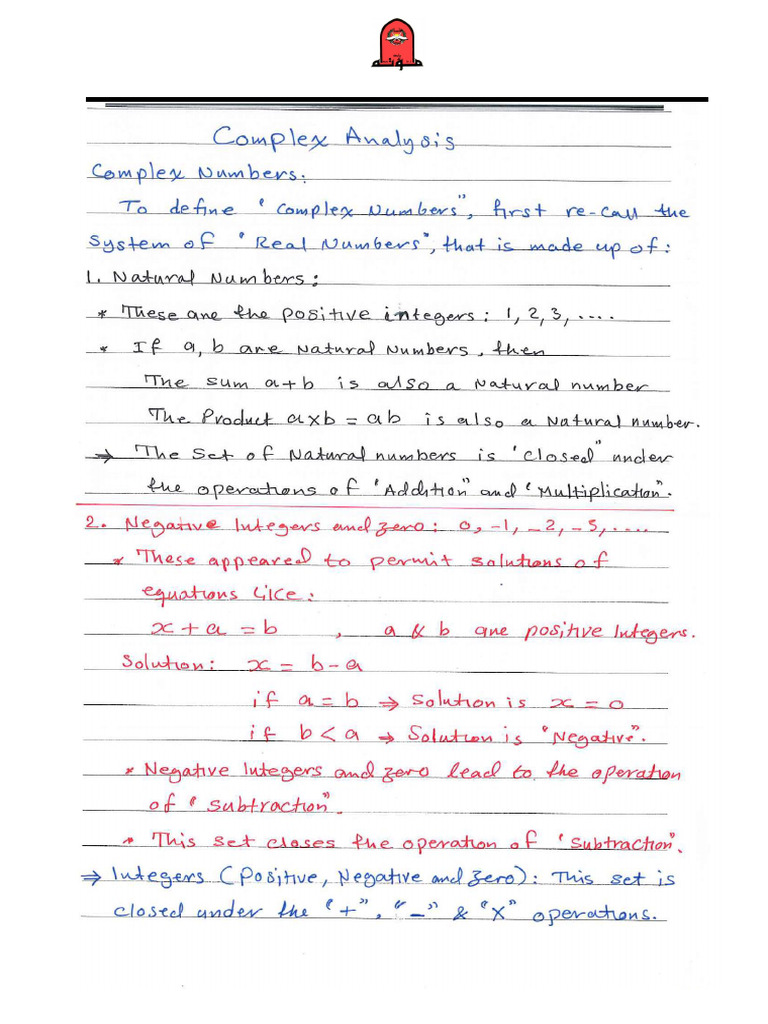 Complex Analysis
Complex Numbers:
To define "Complex Numbers", first re-call the
System of "Real Numbers", that is made up of:
1. Natural Numbers:
* These are the positive integers: 1, 2, 3, ....
* If a, b are Natural Numbers, then
The sum a+b is also a Natural number
The Product a×b = ab is also a Natural number.
→ The Set of Natural numbers is "closed" under
the operations of "Addition" and "Multiplication".
2. Negative Integers and zero: 0, -1, -2, -3, ....
* These appeared to permit solutions of
equations like:
x + a = b , a & b are positive Integers.
Solution: x = b - a
if a = b → Solution is x = 0
if b < a → Solution is "Negative".
* Negative Integers and zero lead to the operation
of "Subtraction".
* This set closes the operation of "Subtraction".
⇒ Integers (Positive, Negative and zero): This set is
closed under the "+", "-" & "×" operations.